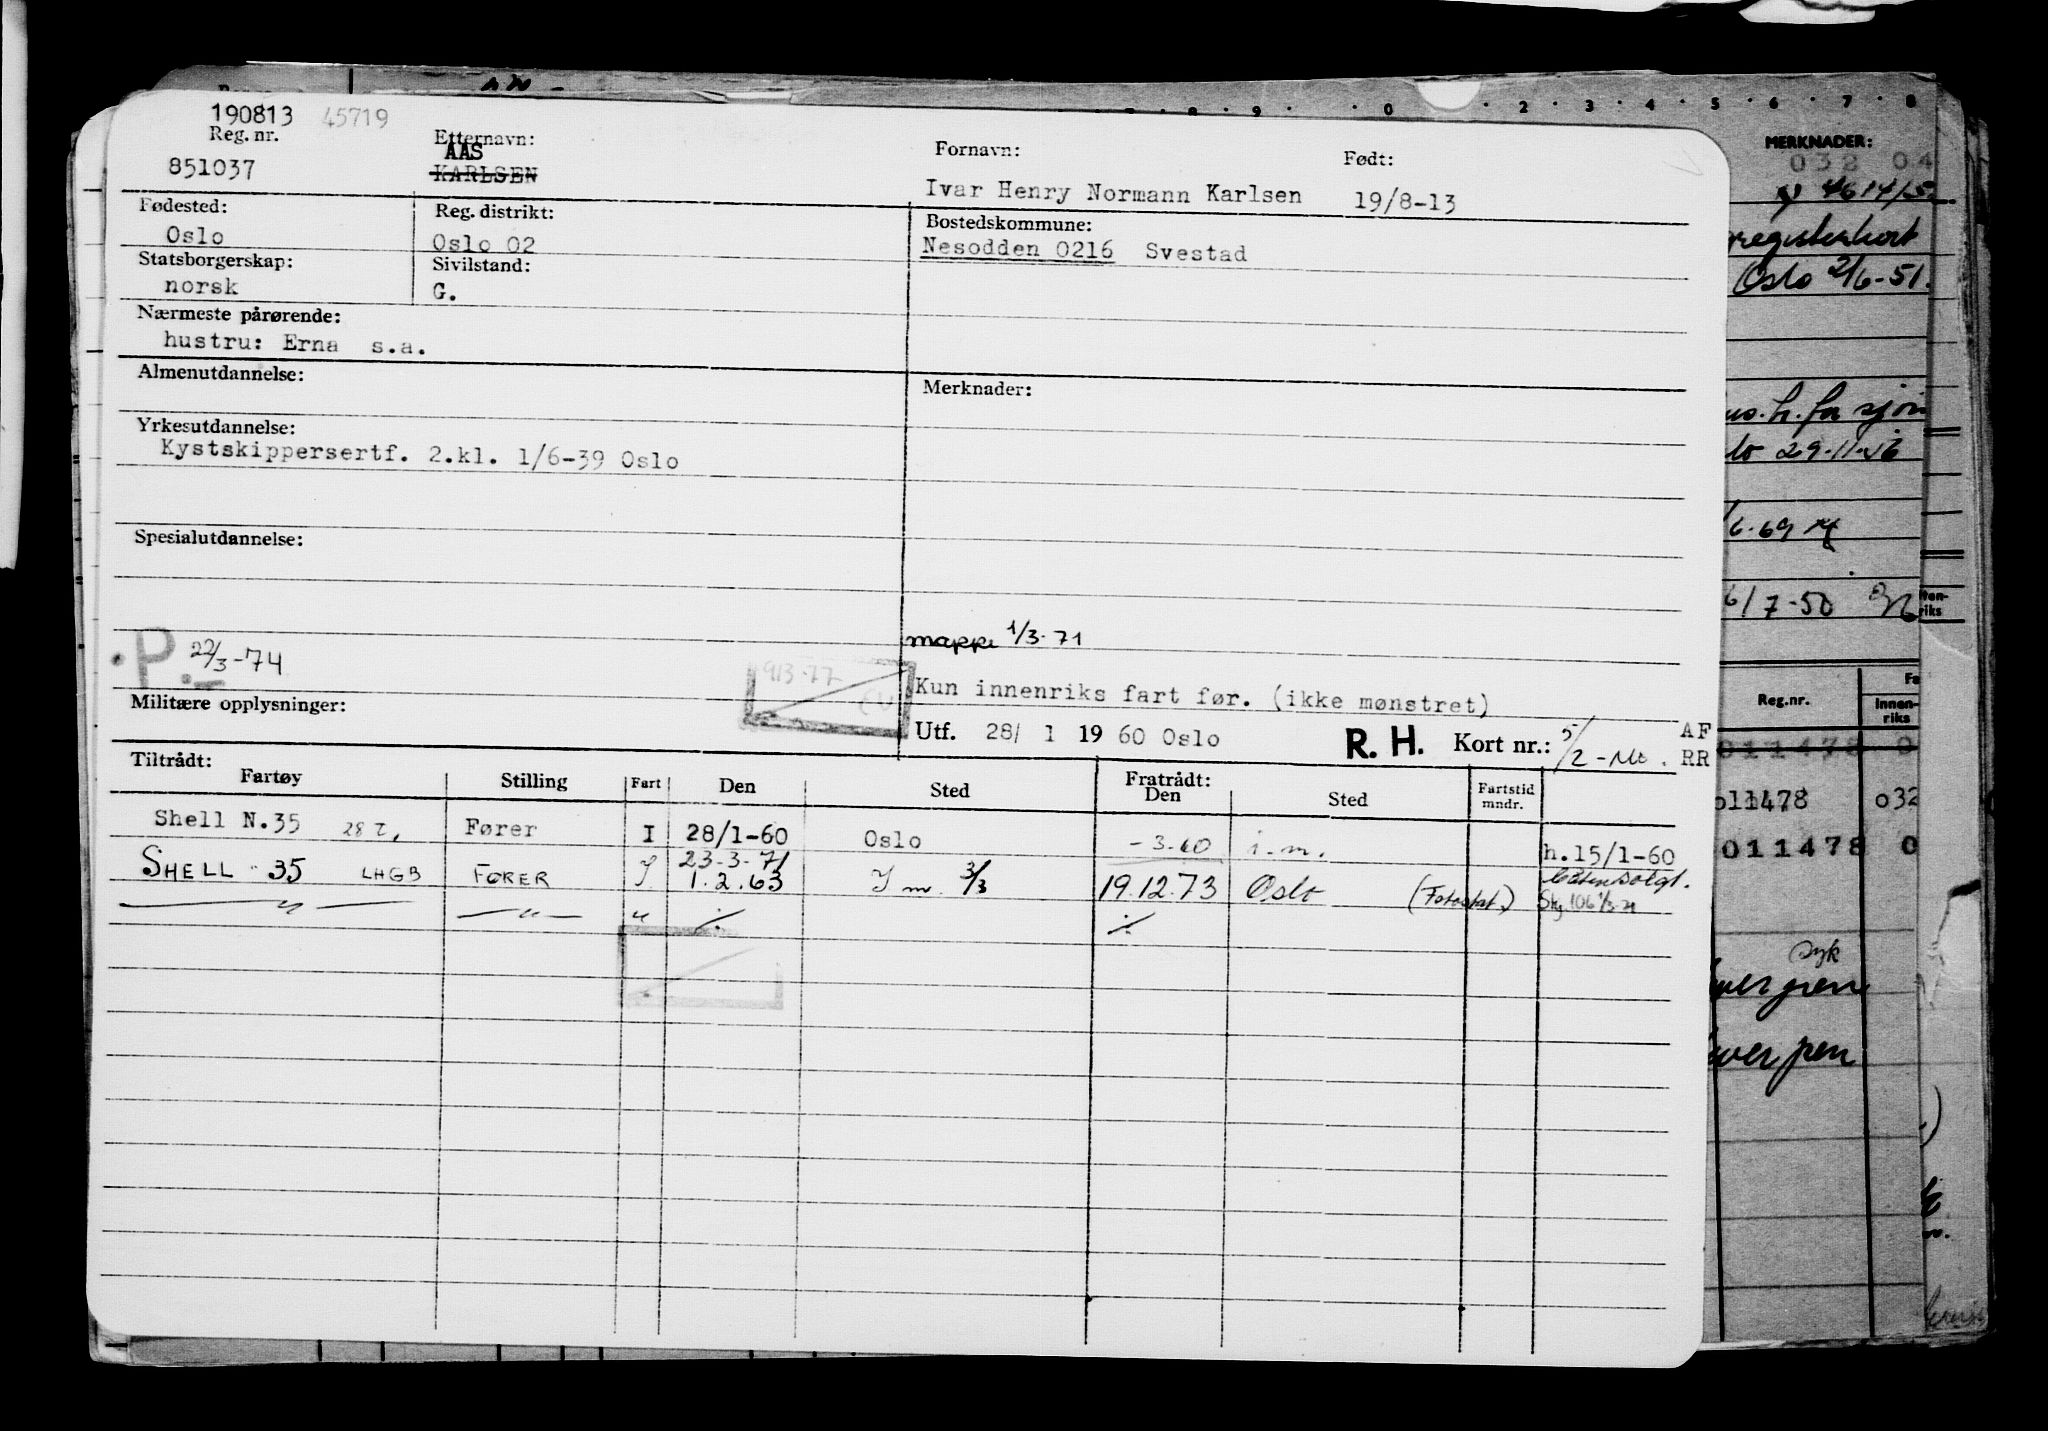 190813 45719
Reg. nr.
851037
Etternavn:
AAS
KARLSEN
Fornavn:
Ivar Henry Normann Karlsen
Født:
19/8-13
Fødested:
Oslo
Reg. distrikt:
Oslo 02
Bostedskommune:
Nesodden 0216 Svestad
Statsborgerskap:
norsk
Sivilstand:
G.
Nærmeste pårørende:
hustru: Erna s.a.
Almenutdannelse:
Merknader:
Yrkesutdannelse:
Kystskippersertf. 2.kl. 1/6-39 Oslo
Spesialutdannelse:
mappe 1/3-71
P. 22/3-74
Militære opplysninger:
Kun innenriks fart før. (ikke mønstret)
Utf. 28/ 1 19 60 Oslo R. H. Kort nr.: 5/2 - AF
RR
Tiltrådt:
Fartøy Stilling Fart Den Sted
Fratrådt:
Den Sted Fartstid
mndr.
Shell N.35 28 T, Fører I 28/1-60 Oslo -3-60 i.m. h.15/1-60
23-3-71
SHELL - 35 LHGB FØRER I 1.2.63 I m. 3/3 19.12.73 Oslo (Fotostat.)
" " " ./. ./.
MERKNADER:
032 04
4614/5
registerkort
Oslo 2/6-51.
29-11-56
6-69
6/7-50
Reg.nr.
Innen-
riks
011478 0
011478 032
011478 0
syk